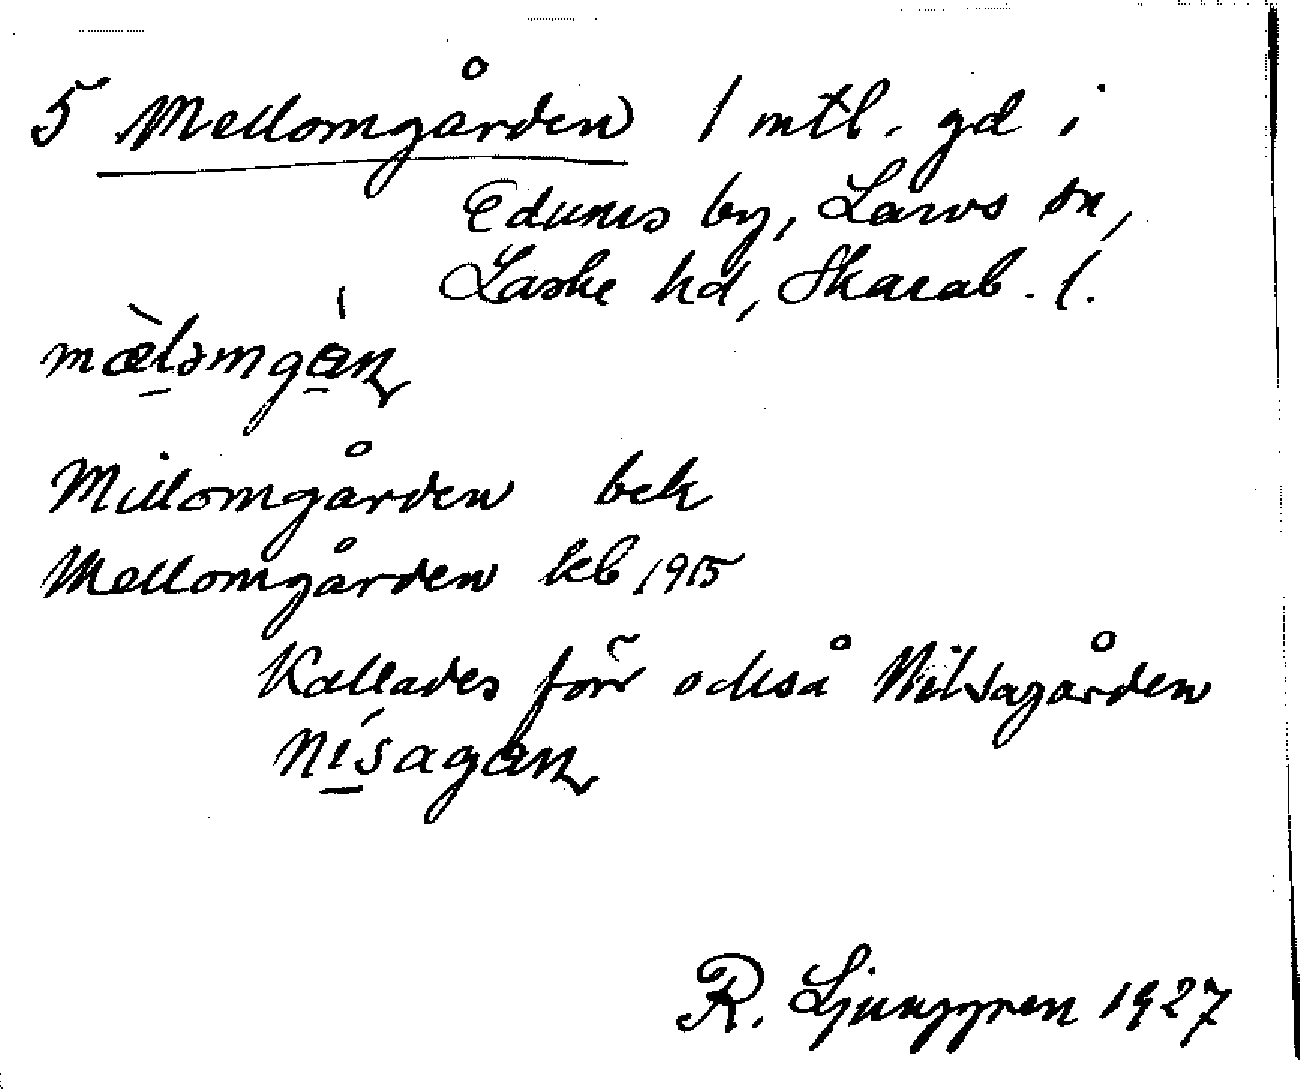 5 Mellomgården 1 mtl. gd i
Edunis by, Larvs sn,
Laske hd, Skarab. l.
mæ̀ləmgán
Millomgården bek
Mellomgården kb 1915
Kallades förr också Nilsagården
nísagan
R. Ljunggren 1927